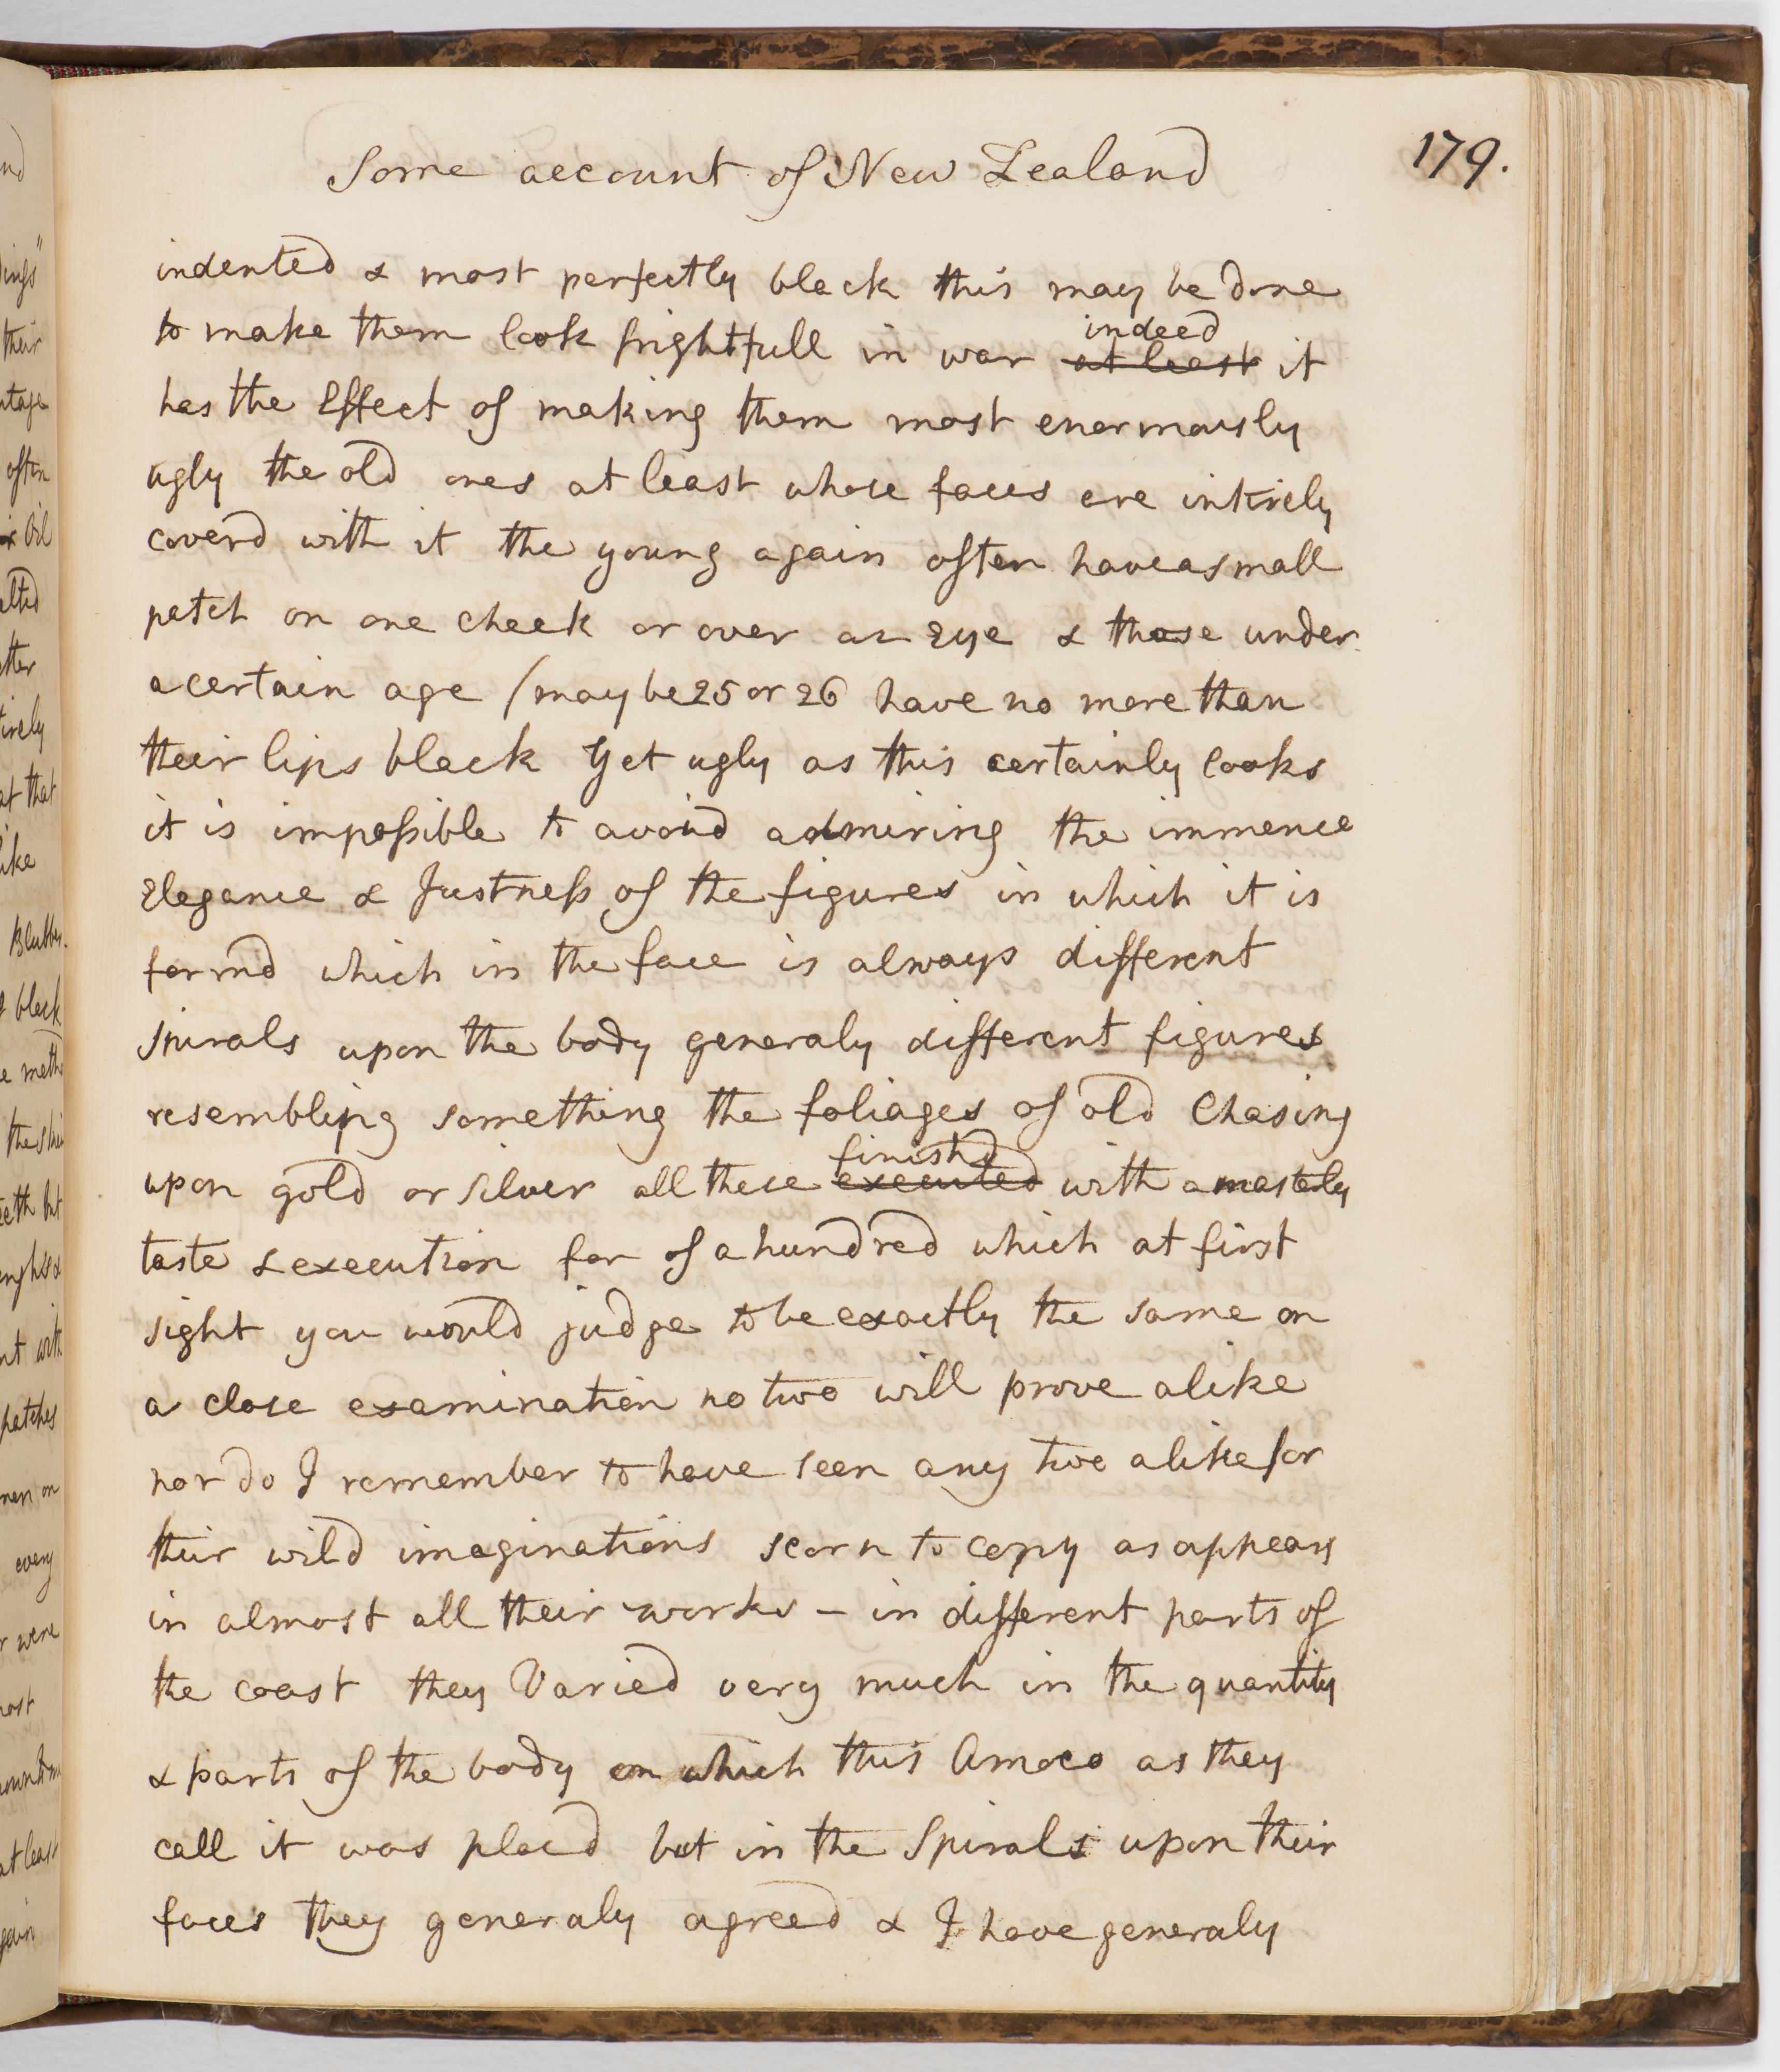 Some account of New Zealand
179.
indented & most perfectly black this may be done
to make them look frightfull in war indeed at least it
has the Effect of making them most enormously
ugly the old ones at least whose faces are intirely
coverd with it the young again often have a small
patch on one cheek or over an eye & those under
a certain age (may be 25 or 26 have no more than
their lips black Yet ugly as this certainly looks
it is impossible to avoid admiring the immence
Elegance & Justness of the figures in which it is
formd which in the face is always different
spirals upon the body generaly different figures
resembling something the foliages of old Chasing
upon gold or silver all these finishd executed with a masterly
taste & execution for of a hundred which at first
sight you would judge to be exactly the same on
a close examination no two will prove alike
nor do I remember to have seen any two alike for
their wild imaginations scorn to copy as appears
in almost all their works – in different parts of
the coast they Varied very much in the quantity
& parts of the body on which this Amoco as they
call it was placd but in the Spirals upon their
faces they generaly agreed & I have generaly
nd
ings"
their
often
oil
etter
irely
at that
like
Blubber.
black
e metho
the skin
eeth but
nt with
patches
men on
every
r were
most
at least